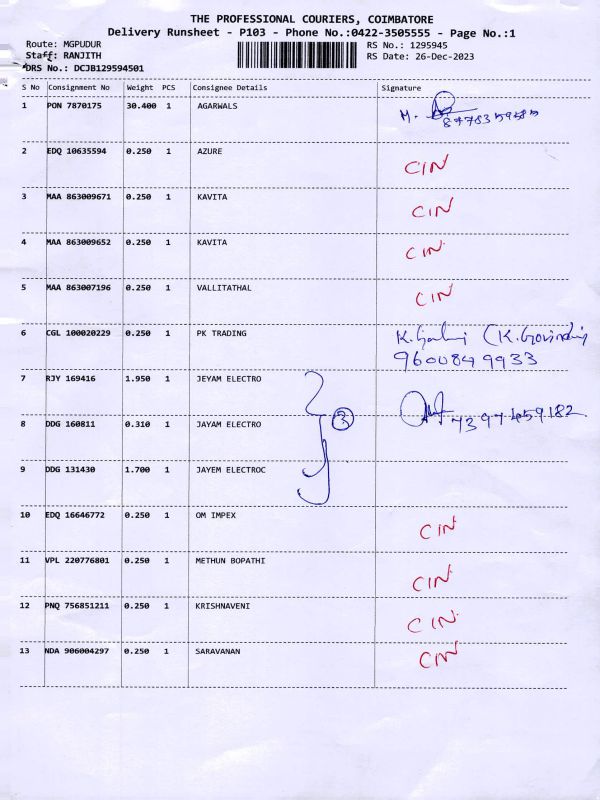 THE PROFESSIONAL COURIERS, COIMBATORE
Delivery Runsheet - P103 - Phone No.:0422-3505555 - Page No.:1
Route: MGPUDUR RS No.: 1295945
Staff: RANJITH RS Date: 26-Dec-2023
DRS No.: DCJB129594501
S No Consignment No Weight PCS Consignee Details Signature
1 PON 7870175 30.400 1 AGARWALS M.
2 EDQ 10635594 0.250 1 AZURE CIN
3 MAA 863009671 0.250 1 KAVITA CIN
4 MAA 863009652 0.250 1 KAVITA CIN
5 MAA 863007196 0.250 1 VALLITATHAL CIN
6 CGL 100020229 0.250 1 PK TRADING
9600849933
7 RJY 169416 1.950 1 JEYAM ELECTRO
8 DDG 160811 0.310 1 JAYAM ELECTRO 7397459182
9 DDG 131430 1.700 1 JAYEM ELECTROC
10 EDQ 16646772 0.250 1 OM IMPEX CIN
11 VPL 220776801 0.250 1 METHUN BOPATHI CIN
12 PNQ 756851211 0.250 1 KRISHNAVENI CIN
13 NDA 906004297 0.250 1 SARAVANAN CIN